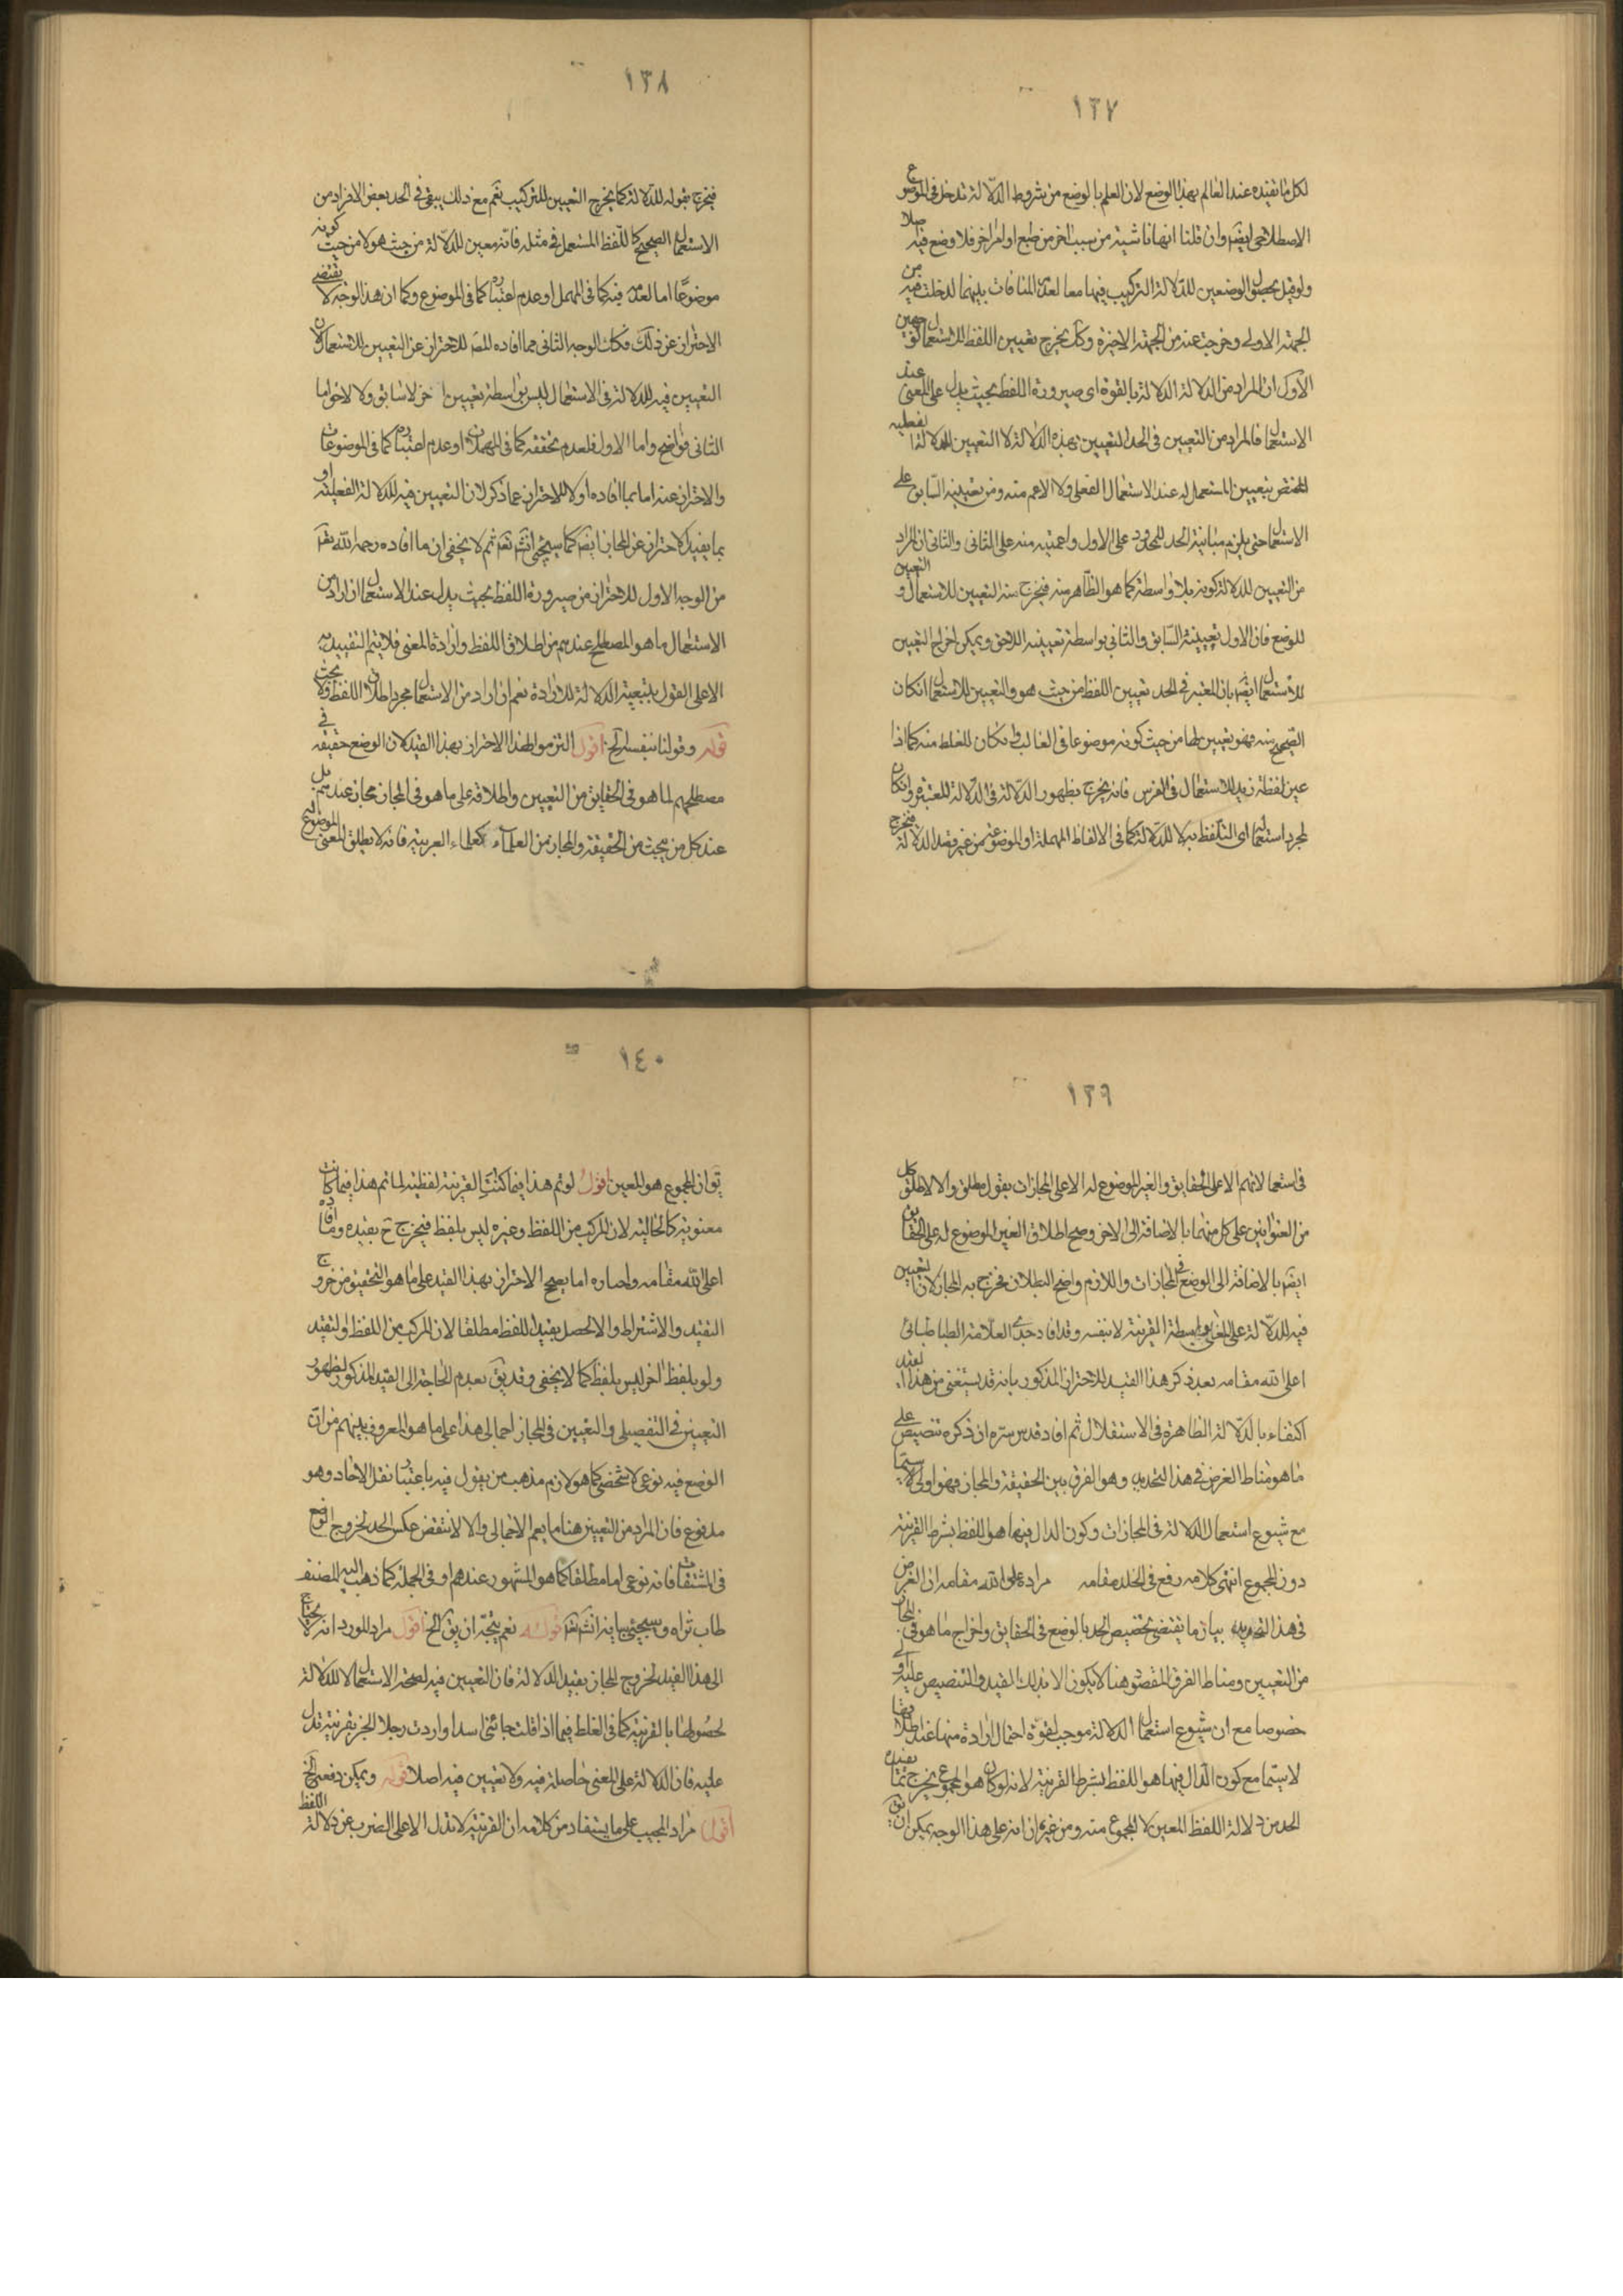 ١٣٧
لكل ما تفيده عند العالم بهذا الوضع لان العلم بالوضع من شروط الدلالة تدخل فى الموضوع
الاصطلاحى ايضم وان قلنا انها ناشية من سبب اخر من طبع او امر اخر فلا وضع فيه اصلا
ولو قيل بحصول الوضعين للدلالة التركيب فيها معا لعدم المنافات بينهما لدخلت فيه من
الجهة الاولى وخرجت عنه من الجهة الاخيرة وكل يخرج تعيين اللفظ للاستعمال لوجهين
الاول ان المراد من الدلالة الدلالة بالقوة اى صيرورة اللفظ بحيث يدل على المعنى عند
الاستعمال فالمراد من التعيين فى الحد التعيين بهذه الدلالة لا التعيين للدلالة الفعلية
المختص بتعيين المستعمل له عند الاستعمال الفعلى ولا الاعم منه ومن تعيينه السابق على
الاستعمال حتى يلزم مباينة الحد للمحدود على الاول واعميته منه على الثانى والثانى ان المراد
من التعيين للدلالة كونه بلا واسطة كما هو الظاهر منه فيخرج منه التعيين للاستعمال و التعيين
للوضع فان الاول بتعيينه السابق والثانى بواسطة تعيينه اللاحق ويمكن اخراج التعيين
للاستعمال ايضم بان المعتبر فى الحد تعيين اللفظ من حيث هو والتعيين للاستعمال ان كان
الصحيح منه فهو تعيين لها من حيث كونه موضوعا فى الغالب وان كان للغلط منه كما اذا
عين لفظة زيد للاستعمال فى الفرس فانه يخرج بظهور الدلالة فى الدلالة المعتبرة وان كان
لمجرد استعمال اى التلفظ به لا للدلالة كما فى الالفاظ المهملة او الموضوعة من غير قصد الدلالة فيخرج
١٣٨
فيخرج بقوله للدلالة كما يخرج التعيين للتركيب نعم مع ذلك يبقى فى الحد بعض الافراد من
الاستعمال الصحيح كاللفظ المستعمل فى مثله فانه معين للدلالة من حيث هو لا من حيث كونه
موضوعا اما لعدمه فيه كما فى المهمل او عدم اعتباره كما فى الموضوع وكما ان هذا الوجه لا يقتضى
الاحتراز عن ذلك فكان الوجه الثانى مما افاده المصم للاحتراز عن التعيين للاستعمال لان
التعيين فيه للدلالة فى الاستعمال ليس بواسطة تعيين اخر لا سابق ولا لاحق اما
الثانى فواضح واما الاول فلعدم تحققه كما فى المهملات او عدم اعتباره كما فى الموضوعات
والاحتراز عنه اما بما افاده اولا للاحتراز عما ذكر لان التعيين فيه للدلالة الفعلية او
بما يفيد الاحتراز عن المجاز ايضم كما سيجئ انشم تعم ثم لا يخفى ان ما افاده رحمه الله تعم
من الوجه الاول للاحتراز من صيرورة اللفظ بحيث يدل عند الاستعمال ان اراد من
الاستعمال ما هو المصطلح عندهم من اطلاق اللفظ وارادة المعنى فلا يتم التقييد به
الا على القول بتبعية الدلالة للارادة نعم ان اراد من الاستعمال مجرد اطلاق اللفظ فلا بحث
قوله وقولنا بنفسه الخ اقول التزموا لهذا الاحتراز بهذا القيد لان الوضع حقيقة فى
مصطلحهم لما هو فى الحقايق من التعيين واطلاقه على ما هو فى المجاز مجاز عندهم بل
عند كل من يبحث من الحقيقة والمجاز من العلماء كعلماء العربية فانه لا يطلق المعنى الموضوع
١٣٩
فى استعمالاتهم الا على الحقايق والغير الموضوع له الا على المجازات بقول مطلق والا لاطلق كل
من العنوانين على كل منهما بالاضافة الى الاخر وصح اطلاق الغير الموضوع له على الحقايق
ايضم بالاضافة الى الوضع فى المجازات واللازم واضح البطلان فخرج به المجاز لان التعيين
فيه للدلالة على المعنى بواسطة القرينة لا بنفسه وقد افاد جدى العلامة الطباطبائى
اعلى الله مقامه بعد ذكر هذا القيد للاحتراز المذكور بانه قد يستغنى من هذا القيد
اكتفاء بالدلالة الظاهرة فى الاستقلال ثم افاد قدس سره ان ذكره تنصيص على
ما هو مناط الغرض فى هذا التحديد وهو الفرق بين الحقيقة والمجاز فهو اولى لا سيما
مع شيوع استعمال الدلالة فى المجازات وكون الدال فيها هو اللفظ بشرط القرينة
دون المجموع انتهى كلامه رفع فى الخلد مقامه مراده اعلى الله مقامه ان الغرض
فى هذا التحديد بيان ما يقتضى تخصيص الحد بالوضع فى الحقايق واخراج ما هو فى المجاز
من التعيين ومناط الفرق المقصود هنا لا يكون الا بذلك القيد والتنصيص عليه اولى
خصوصا مع ان شيوع استعمال الدلالة موجب لقوة احتمال ارادة منها عند اطلاقها
لا سيما مع كون الدال فيها هو اللفظ بشرط القرينة لانه لو كان هو المجموع يخرج بما يفيده
الحد من دلالة اللفظ المعين لا المجموع منه ومن غيره ان انه على هذا الوجه يمكن ان يق
١٤٠
يق ان المجموع هو المعين اقول لو تم هذا فيما كانت القرينة لفظية لما تم هذا فيما كانت
معنوية كالحالية لان المركب من اللفظ وغيره ليس بلفظ فيخرج ح بقيده وما افاده
اعلى الله مقامه واصاره اما يصح الاحتراز بهذا القيد على ما هو التحقيق من خروج
التقيد والاشتراط والا لحصل بقيد اللفظ مطلقا لان المركب من اللفظ والتقيد
ولو بلفظ اخر ليس بلفظ كما لا يخفى وقد يق بعدم الحاجة الى القيد المذكور لظهور
التعيين فى التفصيلى والتعيين فى المجاز اجمالى هذا على ما هو المعروف بينهم من ان
الوضع فيه نوعى لا شخصى كما هو لازم مذهب من يقول فيه باعتبار نقل الاحاد وهو
مدفوع فان المراد من التعيين هنا ما يعم الاجمالى والا لانتقض عكس الحد لخروج الوضع
فى المشتقات فانه نوعى اما مطلقا كما هو المشهور عندهم او فى الجملة كما ذهب اليه المصنف
طاب ثراه وسيجئ بيانه انشم تعم قوله نعم يتجه ان يق الخ اقول مراد المورد انه لا يحتاج
الى هذا القيد لخروج المجاز بقيد الدلالة فان التعيين فيه لصحة الاستعمال لا للدلالة
لحصولها بالقرينة كما فى الغلط فيما اذا قلت جائنى اسد واردت رجلا الخبر بقرينة تدل
عليه فان الدلالة على المعنى حاصلة فيه ولا تعيين فيه اصلا قوله ويمكن دفعه الخ
اقول مراد المجيب على ما يستفاد من كلامه ان القرينة لا تدل الا على الضرب عن دلالة اللفظ